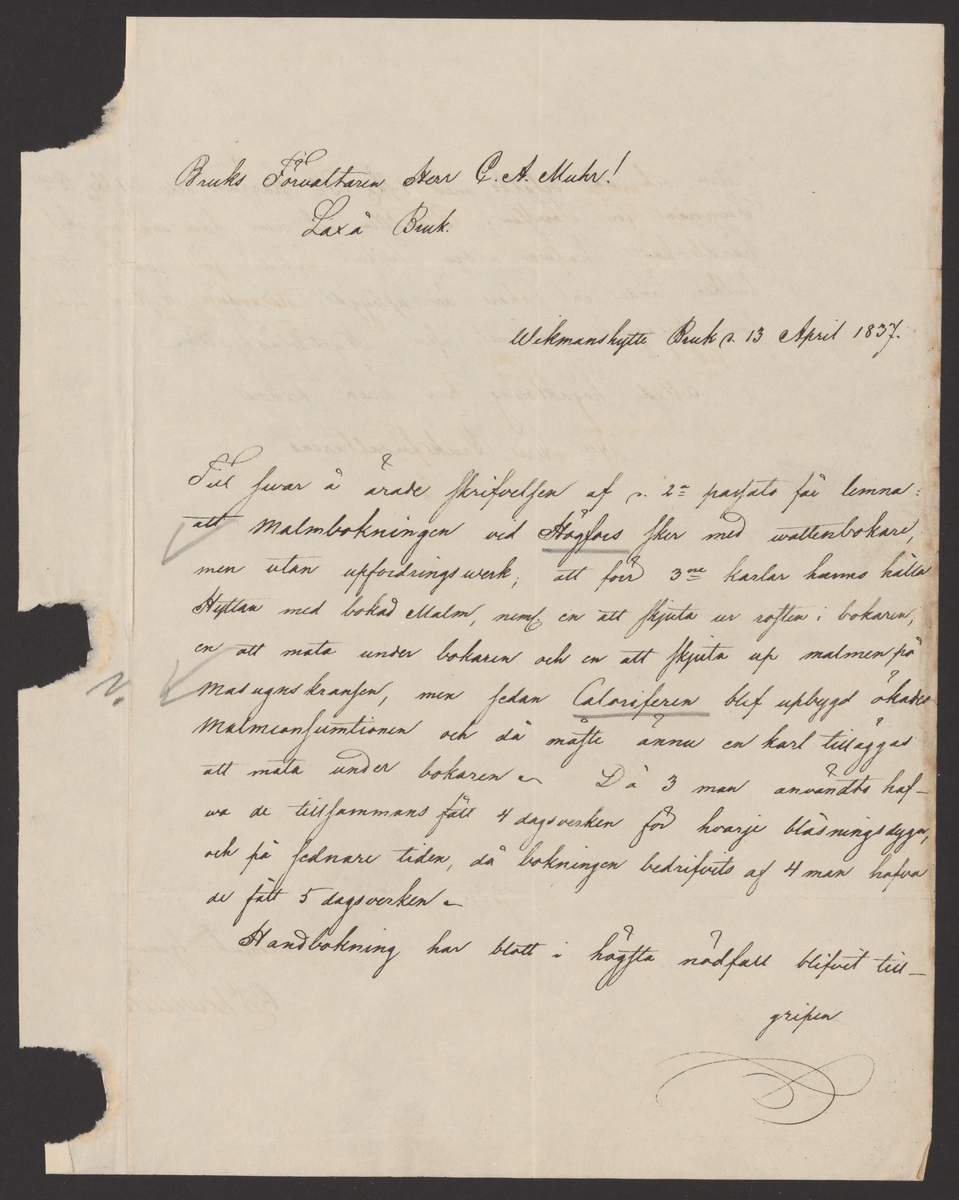 Bruks Förvaltaren Herr C. A. Muhr!
Laxå Bruk.
Wikmanshytte Bruk d. 13 April 1837.
Till svar å ärade skrifvelsen af d. 2n passato får lemna:
att Malmbokningen vid Högfors sker med wattenbokare,
men utan upfordringswerk; att förd 3ne karlar hunns hålla
Hyttan med bokad Malm, neml. en att skjuta ur rosten i bokaren,
en att mata under bokaren och en att skjuta up malmen på
Masugnskransen, men sedan Caloriferen blef upbygd ökades
Malmconsumtionen och då måste ännu en karl tilläggas
att mata under bokaren. Då 3 man användts haf-
va de tillsammans fått 4 dagsverken för hvarje blåsningsdygn,
och på sednare tiden, då bokningen bedrifvits af 4 man hafva
de fått 5 dagsverken.
Handbokning har blott i högsta nödfall blifvit till-
gripen
v.